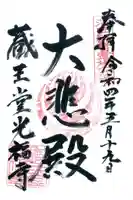 奉拝 令和四年五月十九日
大悲殿
蔵王堂光福寺